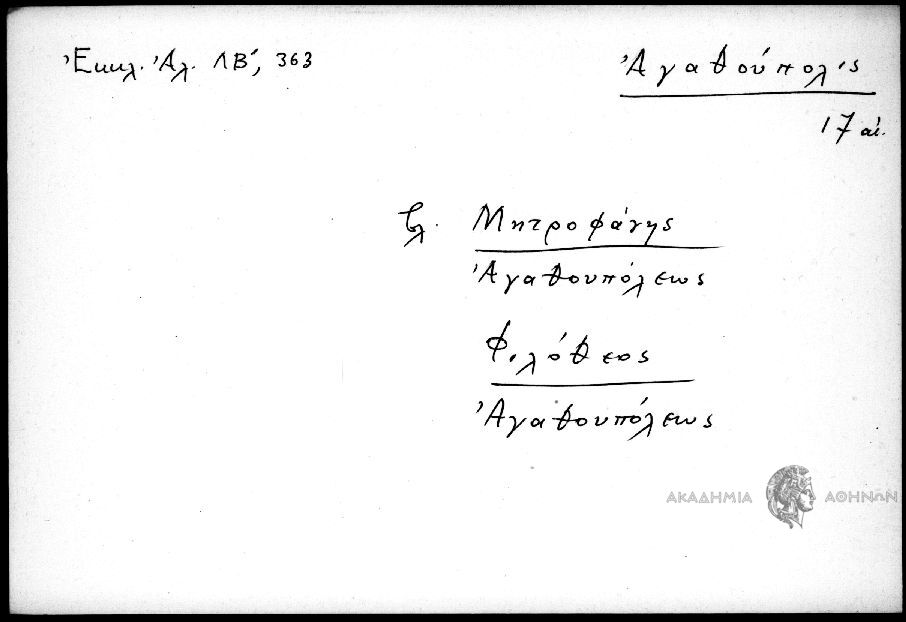 Ἐκκλ. Ἀλ. ΛΒ΄, 363
Ἀγαθούπολις
17 αἰ.
βλ. Μητροφάνης
Ἀγαθουπόλεως
Φιλόθεος
Ἀγαθουπόλεως
ΑΚΑΔΗΜΙΑ ΑΘΗΝΩΝ